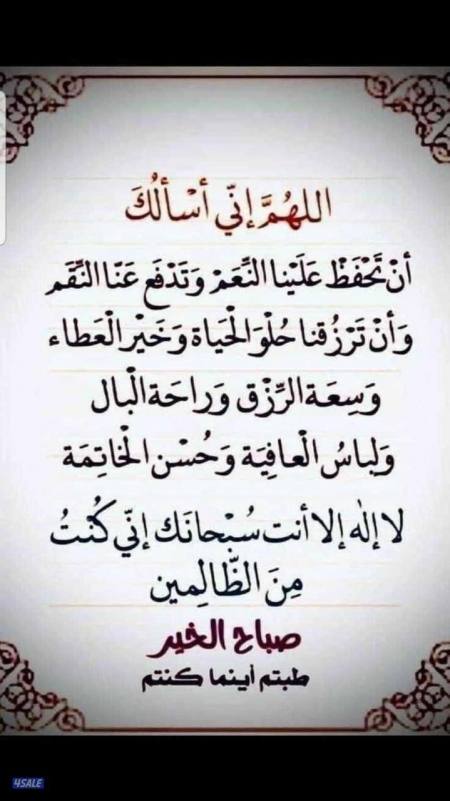 اللهُمَّ إنّي أسْألُكَ
أنْ تَحْفَظْ عَلَيْنا النِّعَمْ وَتَدْفَع عَنّا النِّقَم
وَأنْ تَرْزُقنا حُلْوَ الْحَيَاة وَخَيْر الْعَطاء
وَسِعَة الرِّزْق وَرَاحَة الْبال
وَلِباسُ الْعافِيَة وَحُسْن الْخَاتِمَة
لا إلٰه إلا أنت سُبْحانَك إنّي كُنْتُ
مِنَ الظَّالِمين
صباح الخير
طبتم أينما كنتم
4SALE